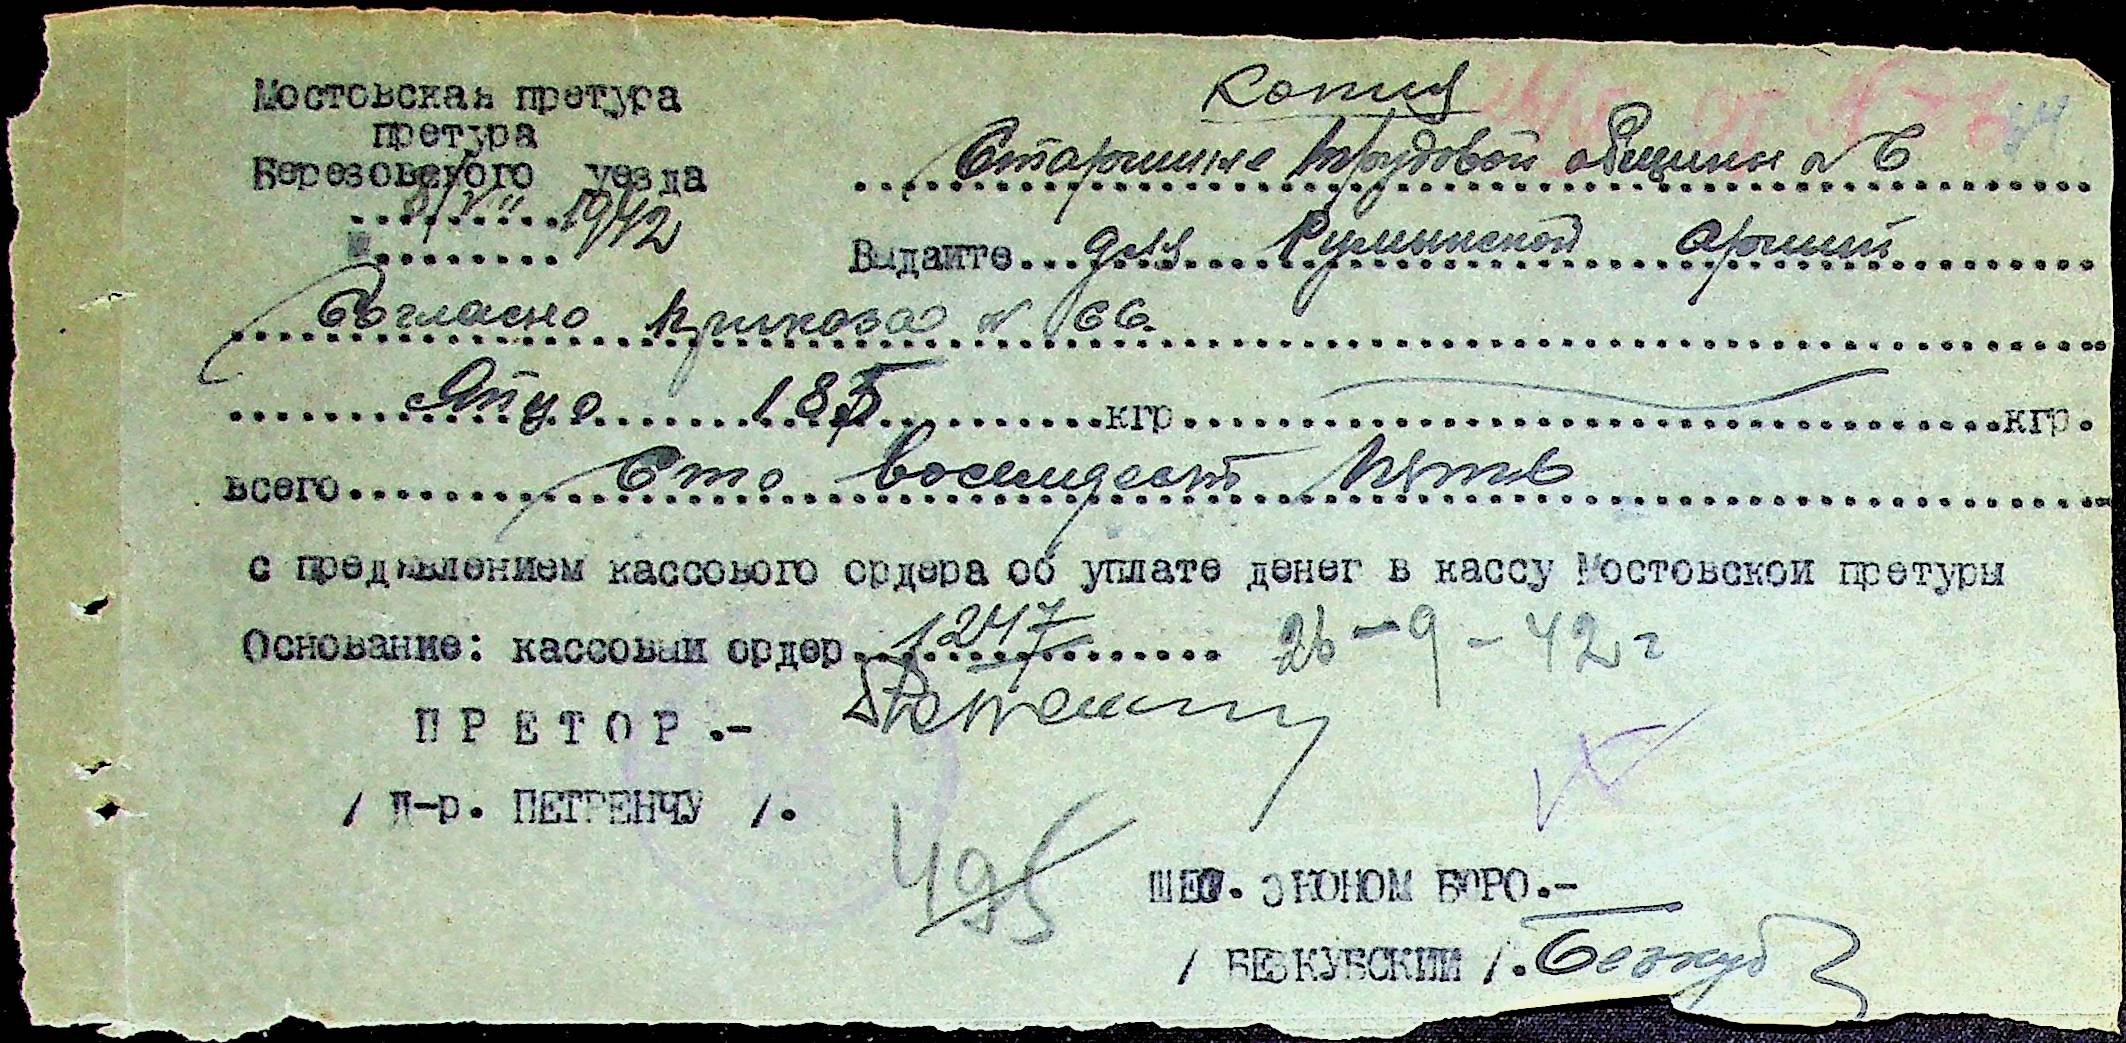 Копия
Мостовская претура
претура
Березовского уезда
1942
Старшине трудовой общины № 6
Выдайте для Румынской армии
Согласно приказа № 66
Яйцо 185 кгр кгр.
всего Сто восемдесят пять
с предявлением кассового ордера об уплате денег в кассу Мостовской претуры
Основание: кассовый ордер 1247 26-9-42 г
ПРЕТОР.-
/ Д-р. ПЕТРЕНЧУ /.
495
ШЕФ. ЭКОНОМ БЮРО.-
/ БЕЗКУБСКИЙ /. Безкуб